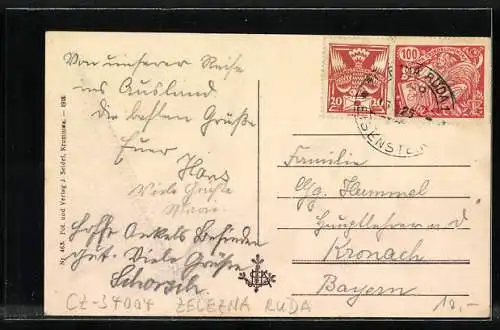 Von unserer Reise
ins Ausland
die besten Grüße
Euer
Hans
Viele Grüße
Marie.
Hoffe Onkels Befinden
gut. Viele Grüße
Schorsch
Nr. 463. Fot. und Verlag J. Seidel, Krummau. — 1926
20 20
100
EISENSTEIN
Familie
Gg. Hummel
Hauptlehrer a. D
Kronach
Bayern
CZ-34004 ZELEZNA RUDA
10,-